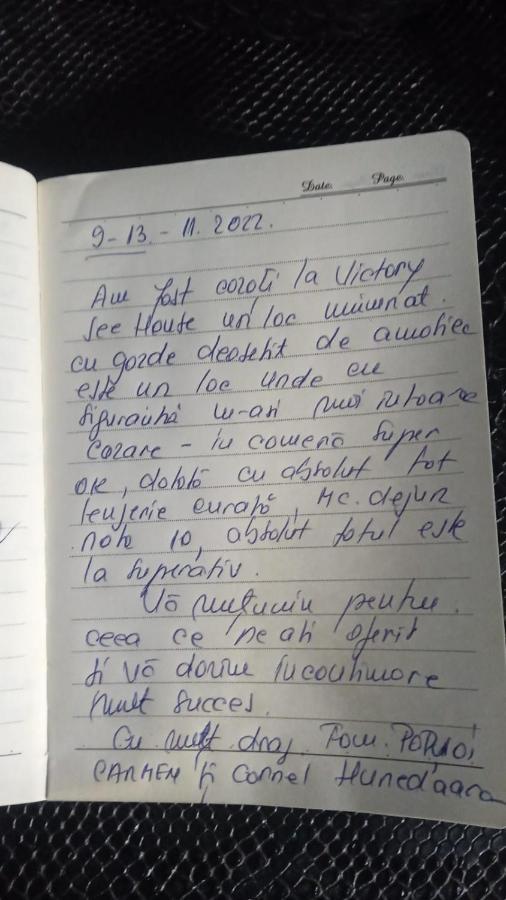 Date. Page.
9-13.-11.2022.
Am fost cazați la Victory
See House un loc minunat.
cu gazde deosebit de amabile
este un loc unde cu
siguranță m-aș mai
Cazare - în cameră super
ok, dotată cu absolut tot
lenjerie curată, mic.dejun
nota 10, absolut totul este
la superativ.
Vă mulțumim pentru
ceea ce ne ați oferit
și vă dorim în continuare
mult succes.
Cu mult drag Fam.
CARMEN și Cornel Hunedoara